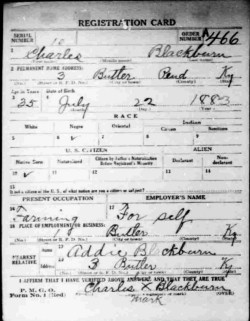 REGISTRATION CARD
SERIAL NUMBER 10 ORDER NUMBER 466
1 Charles Blackburn
2 PERMANENT HOME ADDRESS:
3 Butler Pend Ky
Age in Years Date of Birth
35 July 22 1883
RACE
White Negro Oriental Indian
U. S. CITIZEN ALIEN
Native Born Naturalized Citizen by Father's Naturalization Before Registrant's Majority Declarant Non-declarant
10 ✓
PRESENT OCCUPATION EMPLOYER'S NAME
Farming For self
PLACE OF EMPLOYMENT OR BUSINESS:
Butler Ky
NEAREST RELATIVE
Addie Blackburn
3 Butler Ky
I AFFIRM THAT I HAVE VERIFIED ABOVE ANSWERS AND THAT THEY ARE TRUE
P. M. G. O.
Form No. 1 (Red)
Charles X Blackburn
mark (OVER)